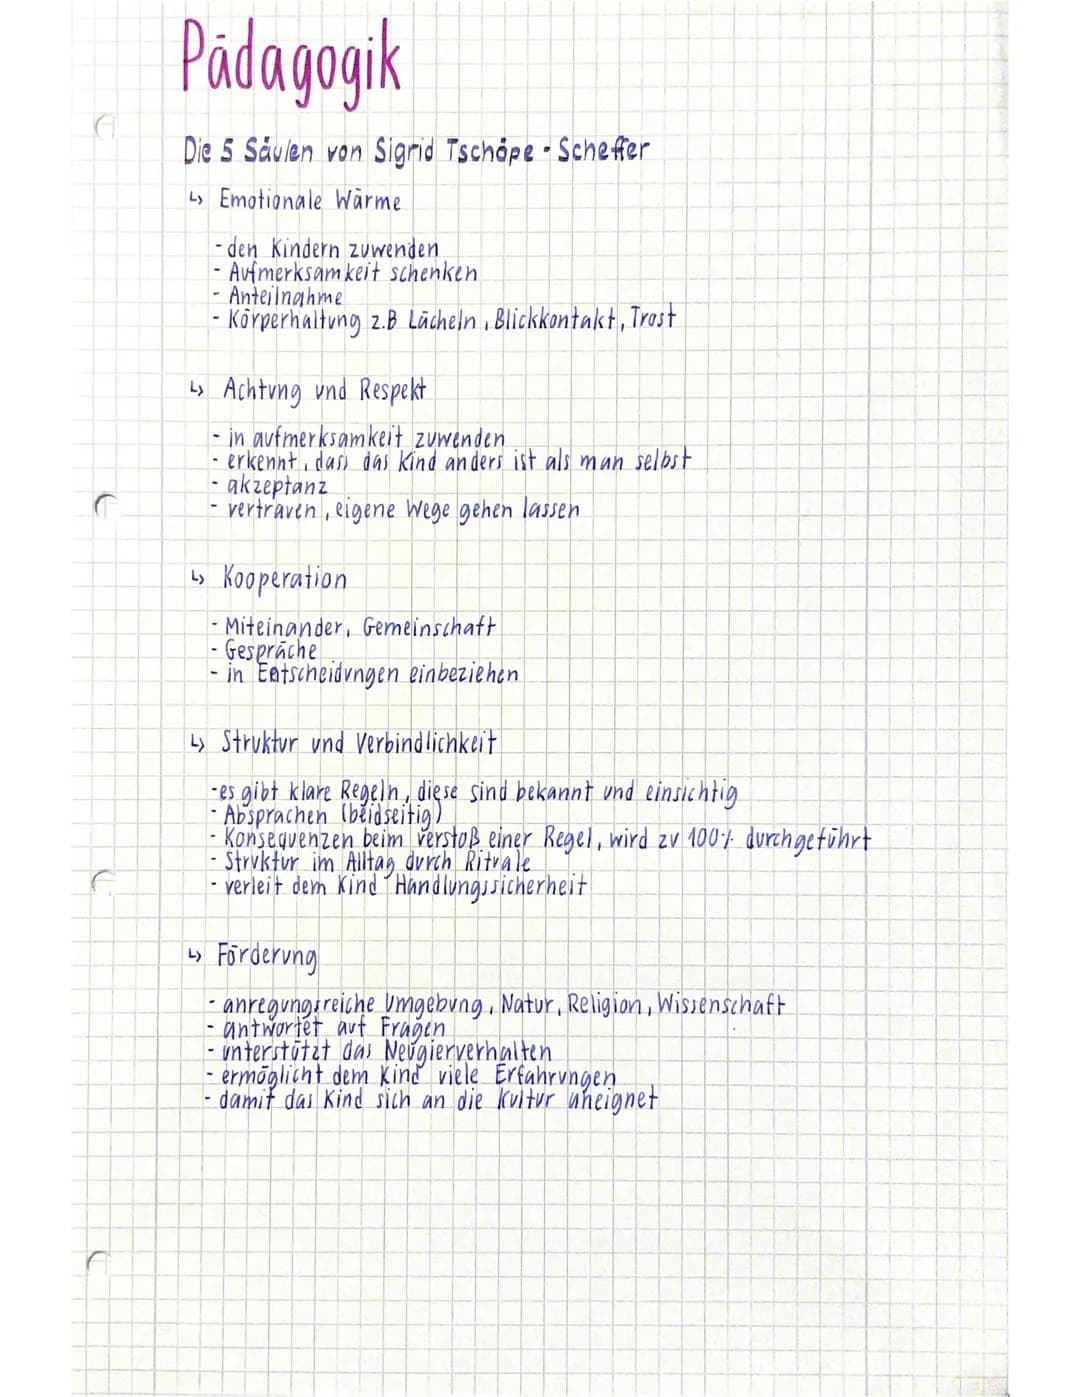 Pädagogik
Die 5 Säulen von Sigrid Tschöpe - Scheffer
↳ Emotionale Wärme
- den Kindern zuwenden
- Aufmerksamkeit schenken
- Anteilnahme
- Körperhaltung z.B Lächeln, Blickkontakt, Trost
↳ Achtung und Respekt
- in aufmerksamkeit zuwenden
- erkennt, dass das Kind anders ist als man selbst
- akzeptanz
- vertrauen, eigene Wege gehen lassen
↳ Kooperation
- Miteinander, Gemeinschaft
- Gespräche
- in Entscheidungen einbeziehen
↳ Struktur und Verbindlichkeit
- es gibt klare Regeln, diese sind bekannt und einsichtig
- Absprachen (beidseitig)
- Konsequenzen beim verstoß einer Regel, wird zu 100% durchgeführt
- Struktur im Alltag durch Rituale
- verleit dem Kind Handlungssicherheit
↳ Förderung
- anregungsreiche Umgebung, Natur, Religion, Wissenschaft
- antwortet auf Fragen
- unterstützt das Neugierverhalten
- ermöglicht dem Kind viele Erfahrungen
- damit das Kind sich an die Kultur aneignet